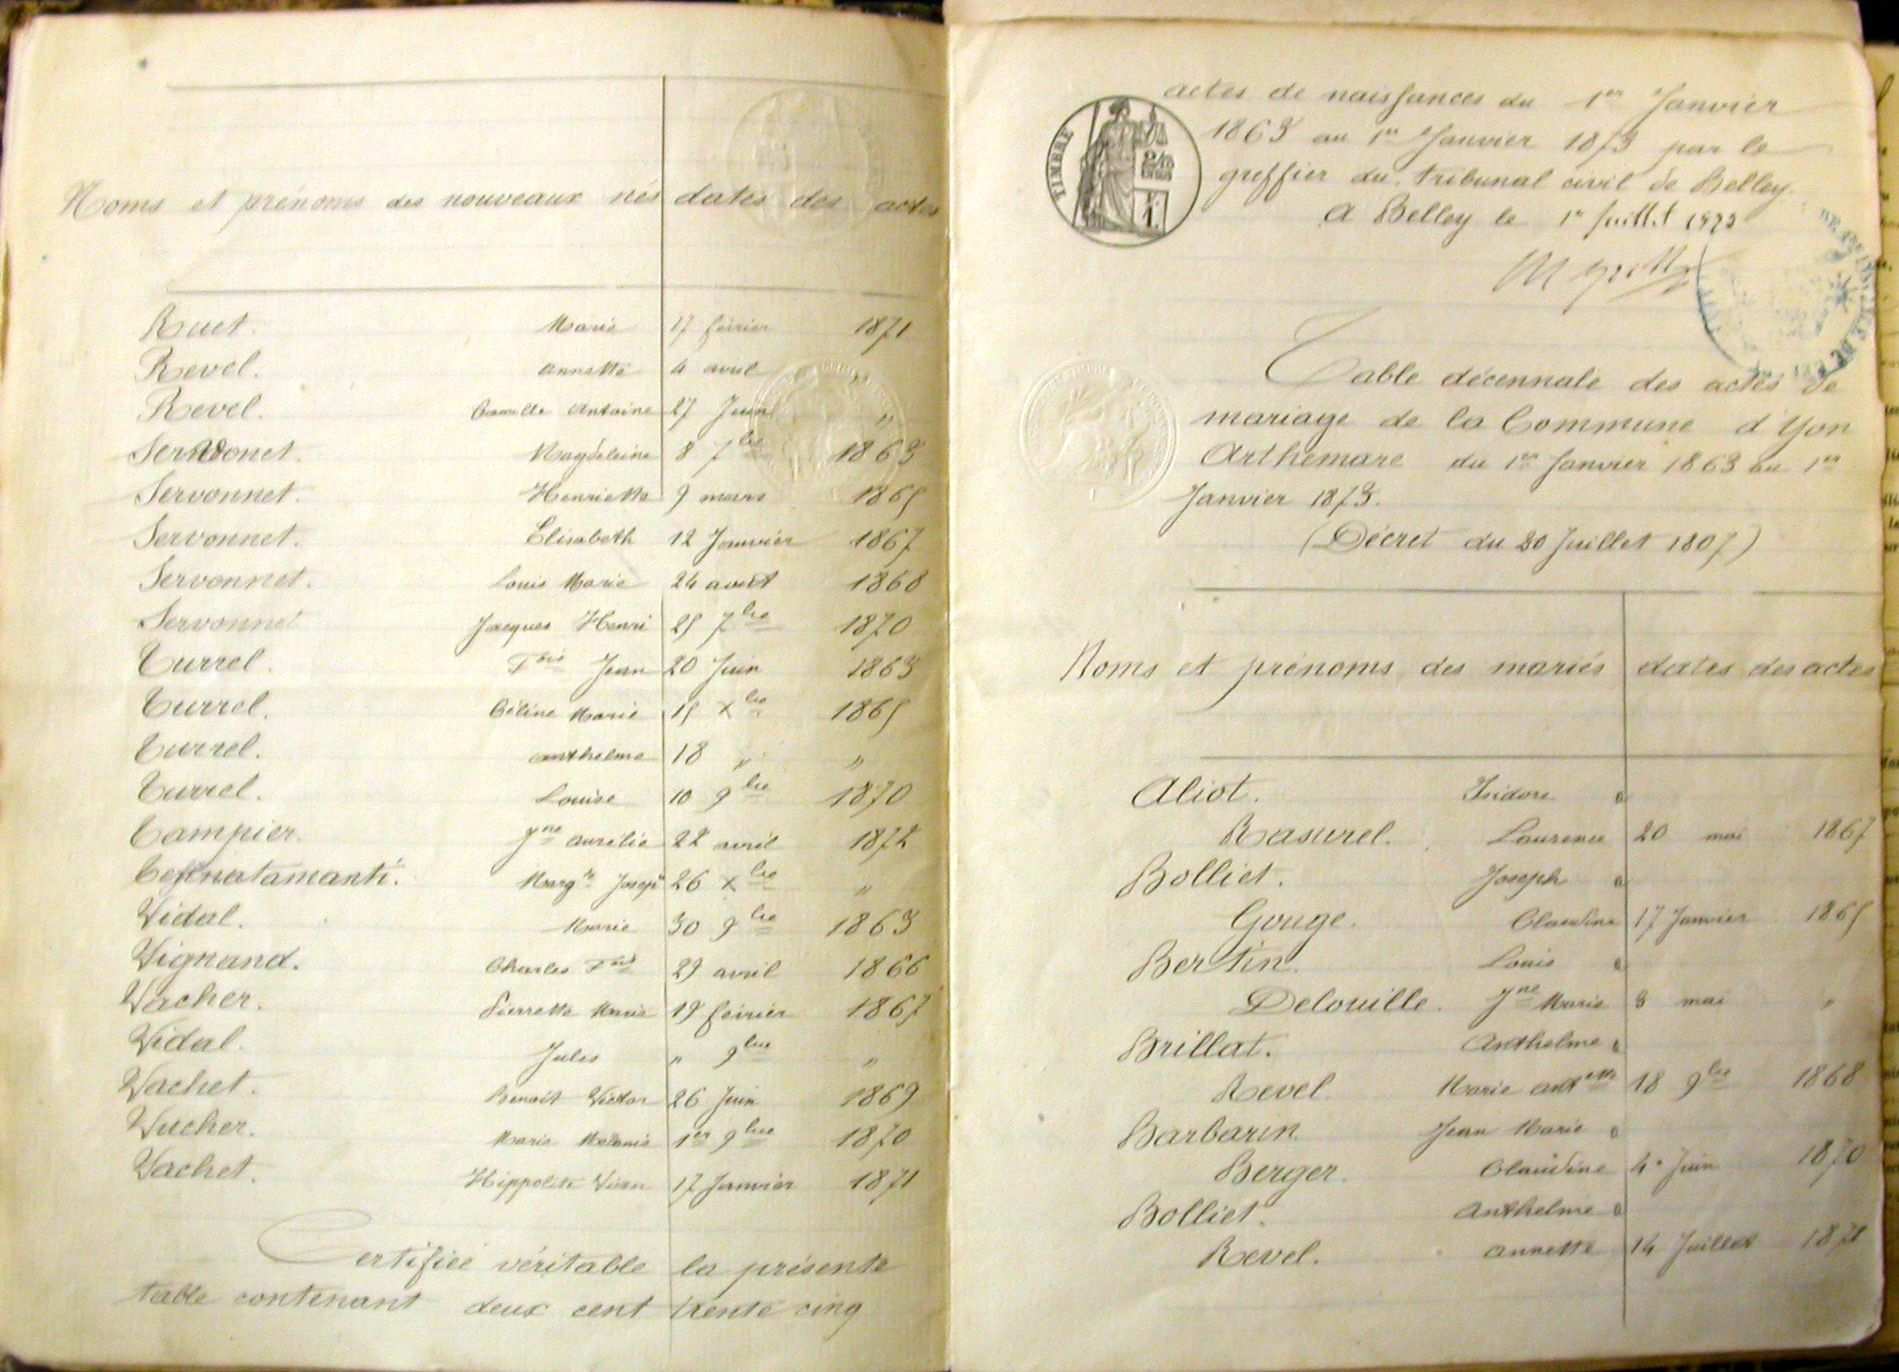 Noms et prénoms des nouveaux nés dates des actes
Ruet. Marie 17 février 1871
Revel. annette 4 avril "
Revel. Camille Antoine 27 Juin "
Servonet. Magdeleine 8 7bre 1863
Servonnet. Henriette 9 mars 1865
Servonnet. Elisabeth 12 Janvier 1867
Servonnet. Louis Marie 24 août 1868
Servonnet Jacques Henri 25 7bre 1870
Turrel. Fois Jean 20 Juin 1863
Turrel. Céline Marie 15 Xbre 1865
Turrel. anthelme 18 " "
Turrel. Louise 10 9bre 1870
Tampier. Jne aurélie 22 avril 1872
Margte Joseph 26 Xbre "
Vidal. Marie 30 9bre 1863
Vignand. Charles Fois 29 avril 1866
Vacher. Pierrette Marie 19 février 1867
Vidal. Jules " 9bre "
Vachet. Benoit Victor 26 Juin 1869
Vucher. Marie Melanie 1er 9bre 1870
Vachet. Hippolite 17 Janvier 1871
Certifiée véritable la présente
table contenant deux cent trente cinq
actes de naissances du 1er Janvier
1863 au 1er Janvier 1873 par le
greffier du tribunal civil de Belley.
A Belley le 1er Juillet 1873
TIMBRE
Table décennale des actes de
mariage de la Commune d'Yon
Arthemare du 1er Janvier 1863 au 1er
Janvier 1873.
(Décret du 20 Juillet 1807)
Noms et prénoms des mariés dates des actes
Aliot. Isidore &
Rasurel. Laurence 20 mai 1867
Bolliet. Joseph &
Gouge. Claudine 17 Janvier 1865
Bertin. Louis &
Delouille. Jne Marie 8 mai "
Brillat. Anthelme &
Revel. Marie antette 18 9bre 1868
Barbarin Jean Marie &
Berger. Claudine 4 Juin 1870
Bolliet. Anthelme &
Revel. annette 14 Juillet 1871